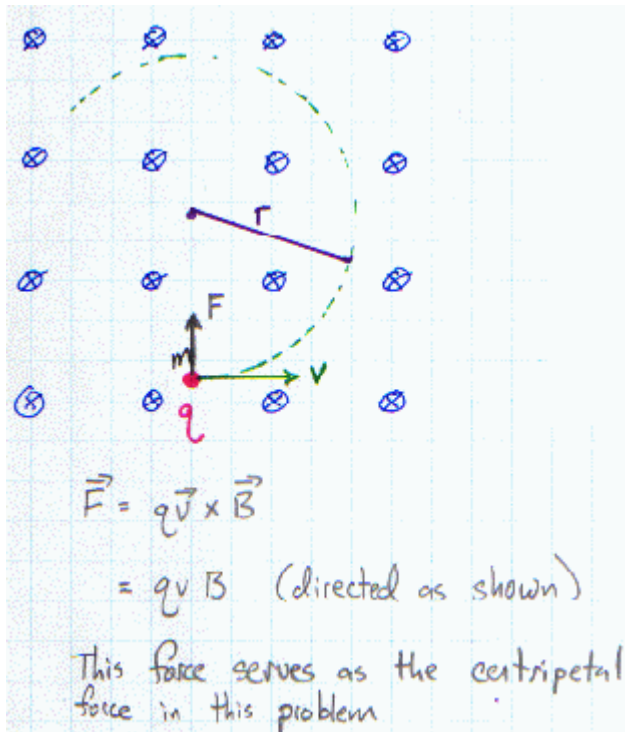 r
F
m
v
q
F⃗ = qv⃗ x B⃗
= qvB (directed as shown)
This force serves as the centripetal
force in this problem